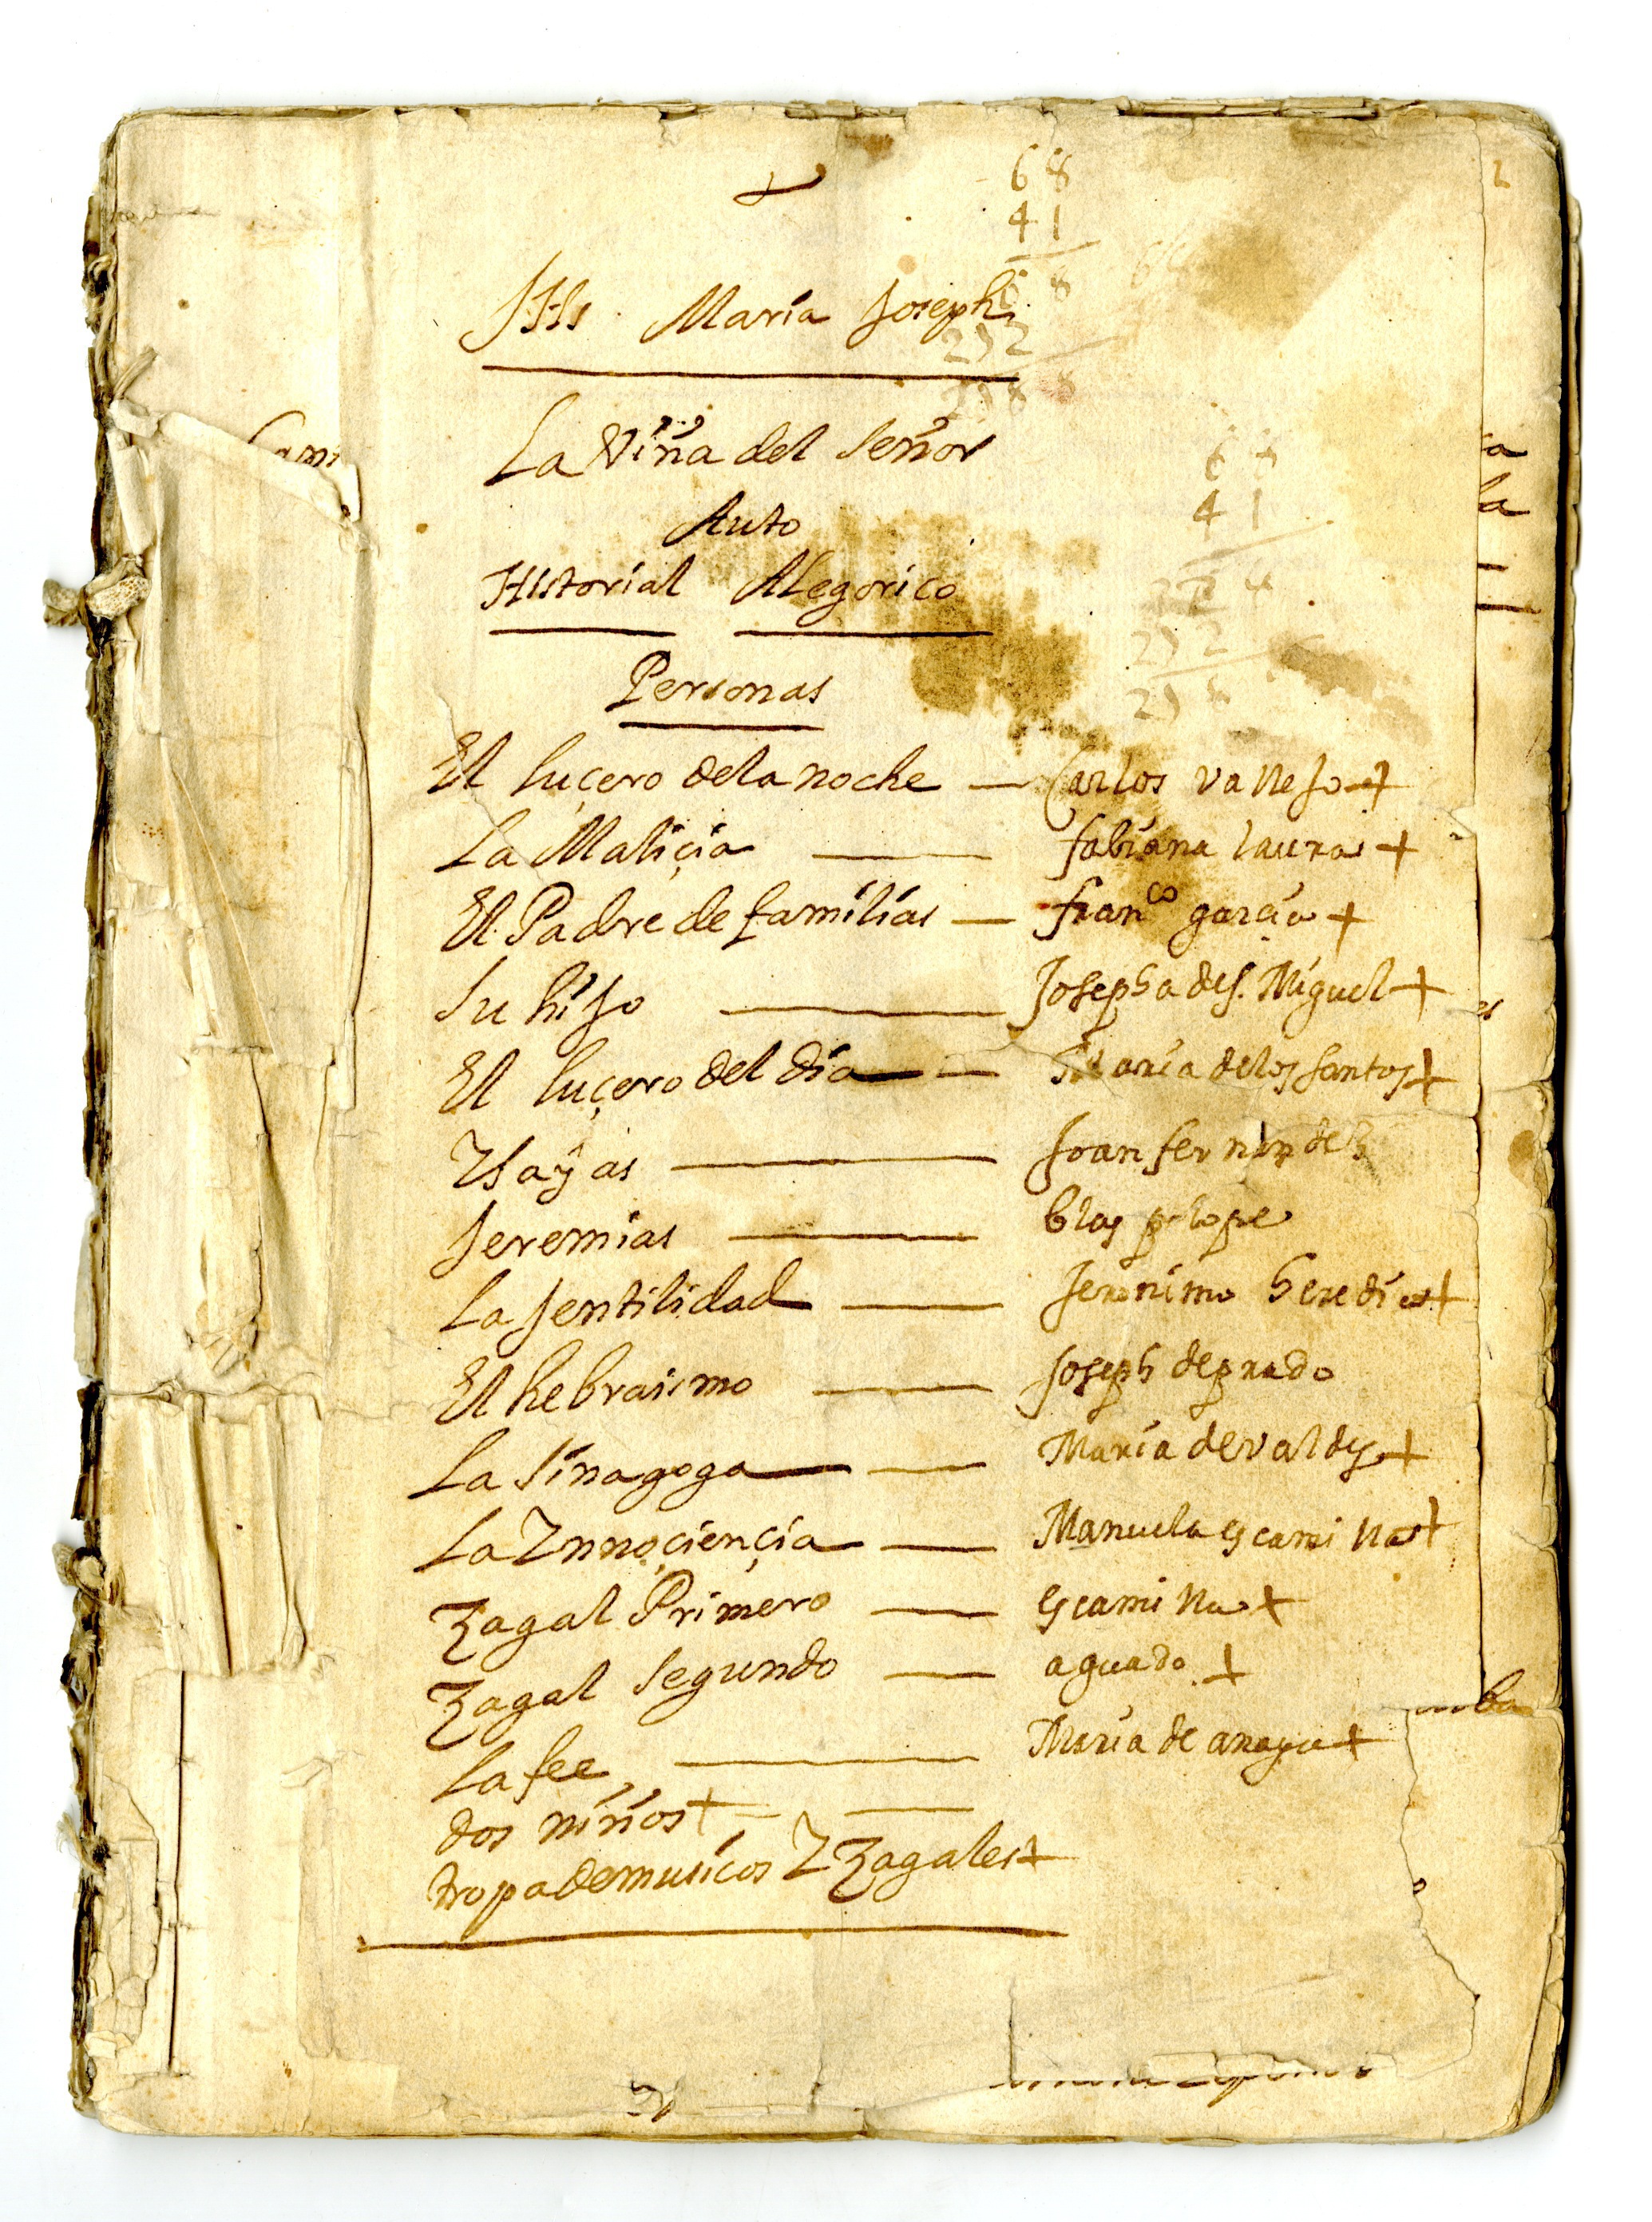 68
41
JHs Maria Joseph
La Viña del Señor
Auto
Historial Alegorico
Personas
El luçero dela noche — Carlos vallejo +
La Maliçia — fabiana laura +
El Padre de familias — franco garcia +
Su hijo — Josepha de s. Miguel +
El luçero del dia — Maria delos santos +
Ysayas — Joan fernandez
Jeremias — blas polope
La Jentilidad — Jeronimo heredia +
El hebraismo — Joseph de prado
La Sinagoga — Maria de valdes +
La Ynnoçiençia — Manuela escamilla +
Zagal Primero — escamilla +
Zagal Segundo — aguado +
La fee — Maria de anaya +
dos niños +
tropa de musicos Y Zagales +